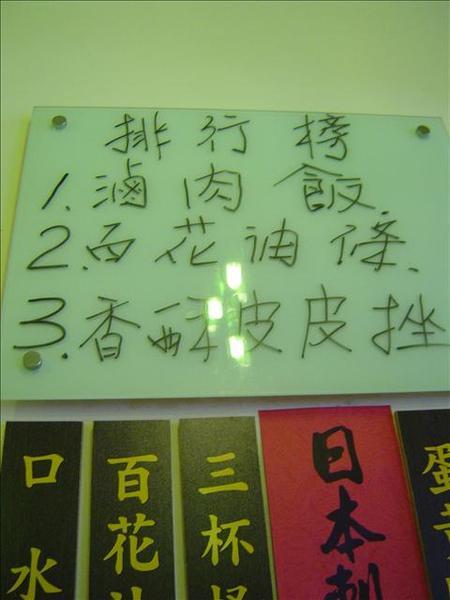 排行榜
1.滷肉飯.
2.百花油條.
3.香酥皮皮挫
口水
百花
三杯
日本刺
蛋黃